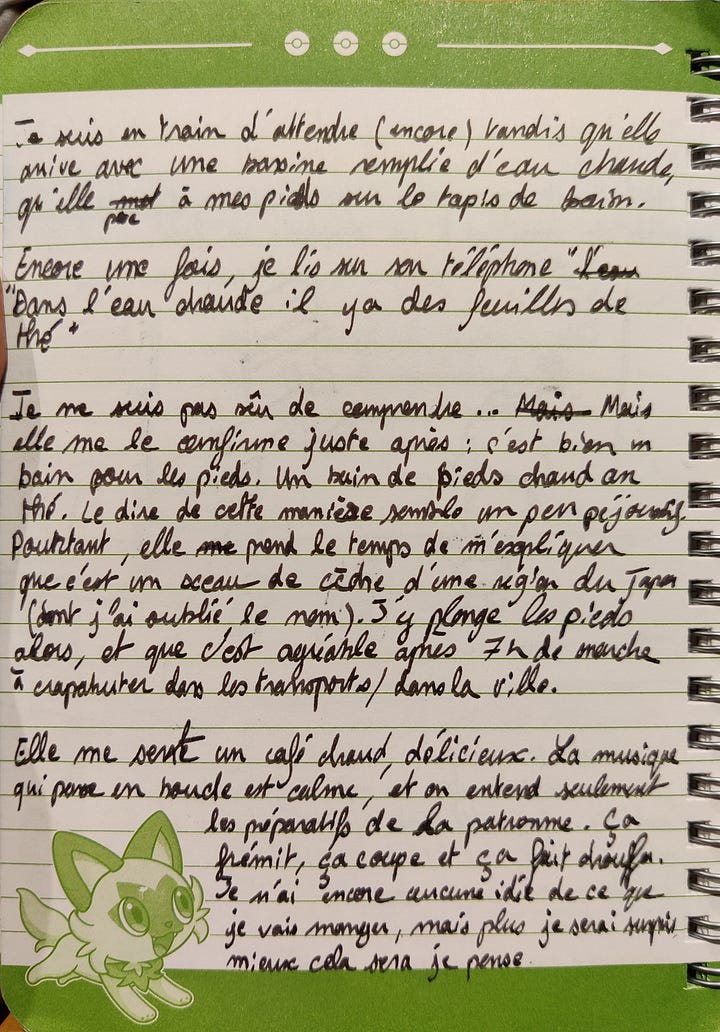 Je suis en train d'attendre (encore) tandis qu'elle
arrive avec une bassine remplie d'eau chaude,
qu'elle pose à mes pieds sur le tapis de bain.
Encore une fois, je lis sur son téléphone
"Dans l'eau chaude il y a des feuilles de
thé"
Je ne suis pas sûr de comprendre... Mais
elle me le confirme juste après : c'est bien un
bain pour les pieds. Un bain de pieds chaud au
thé. Le dire de cette manière semble un peu péjoratif.
Pourtant, elle prend le temps de m'expliquer
que c'est un sceau de cèdre d'une région du Japon
(dont j'ai oublié le nom). J'y plonge les pieds
alors, et que c'est agréable après 7h de marche
à crapahuter dans les transports/dans la ville.
Elle me sert un café chaud, délicieux. La musique
qui passe en boucle est calme, et on entend seulement
les préparatifs de la patronne. Ça
frémit, ça coupe et ça fait chauffer.
Je n'ai encore aucune idée de ce que
je vais manger, mais plus je serai surpris
mieux cela sera je pense.